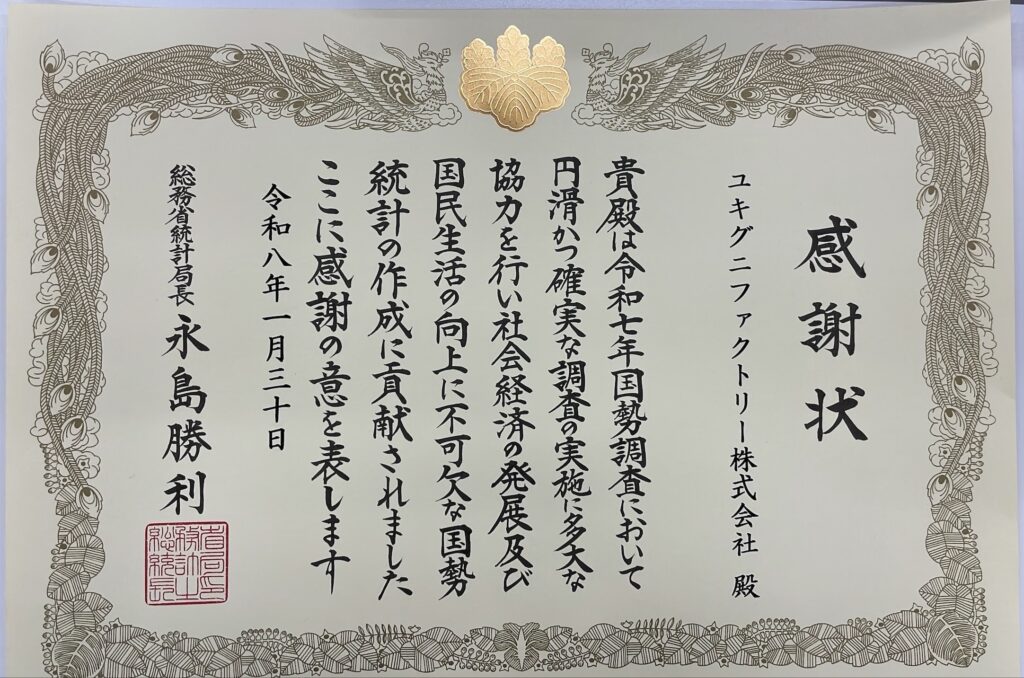 感謝状
ユキグニファクトリー株式会社 殿
貴殿は令和七年国勢調査において
円滑かつ確実な調査の実施に多大な
協力を行い社会経済の発展及び
国民生活の向上に不可欠な国勢
統計の作成に貢献されました
ここに感謝の意を表します
令和八年一月三十日
総務省統計局長 永島勝利